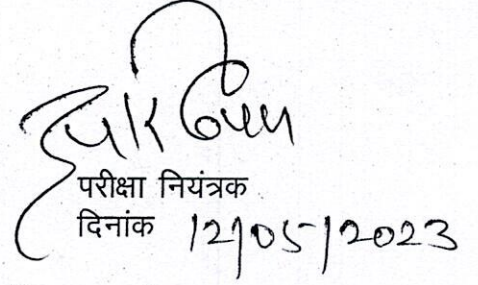 परीक्षा नियंत्रक
दिनांक 12/05/2023